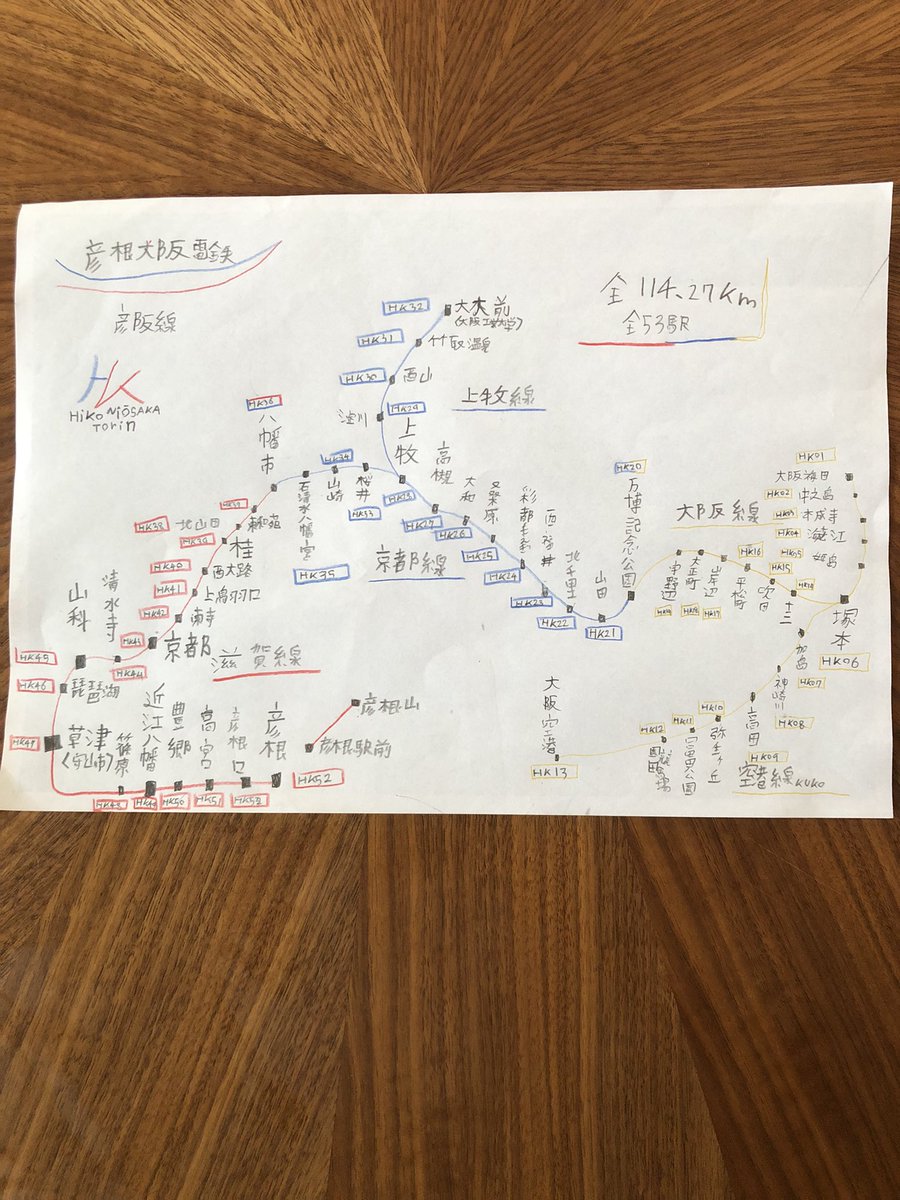 彦根大阪電鉄
彦阪線
HK
HiKONEŌSAKA
Torin
全114.27Km
全53駅
上牧線
HK32
大大前
(大阪工業大学)
HK31
竹取温泉
HK30
西山
HK29
淀川
上牧
HK28
京都線
HK36
八幡市
HK35
石清水八幡宮
HK34
山崎
HK33
桜井
高槻
HK27
大和
HK26
HK25
彩都
HK24
西福井
HK23
北千里
HK22
山田
HK21
HK20
万博記念公園
大阪線
HK01
大阪梅田
HK02
中之島
HK03
本成寺
HK04
海老江
HK05
姫島
塚本
HK06
十三
HK14
吹田
HK15
平松町
HK16
岸辺
HK17
大正町
HK18
宇野辺
HK19
加島
HK07
神崎川
HK08
高田
HK09
弥生ヶ丘
HK10
富田公園
HK11
HK12
大阪空港
HK13
空港線 KUKO
滋賀線
HK37
HK38
北山田
HK39
桂
HK40
西大路
HK41
上鳥羽口
HK42
南寺
HK43
京都
HK44
清水寺
HK45
山科
HK46
琵琶湖
HK47
草津
(守山市)
HK48
篠原
HK49
近江八幡
HK50
豊郷
HK51
高宮
HK52
彦根口
彦根
HK52
彦根駅前
彦根山